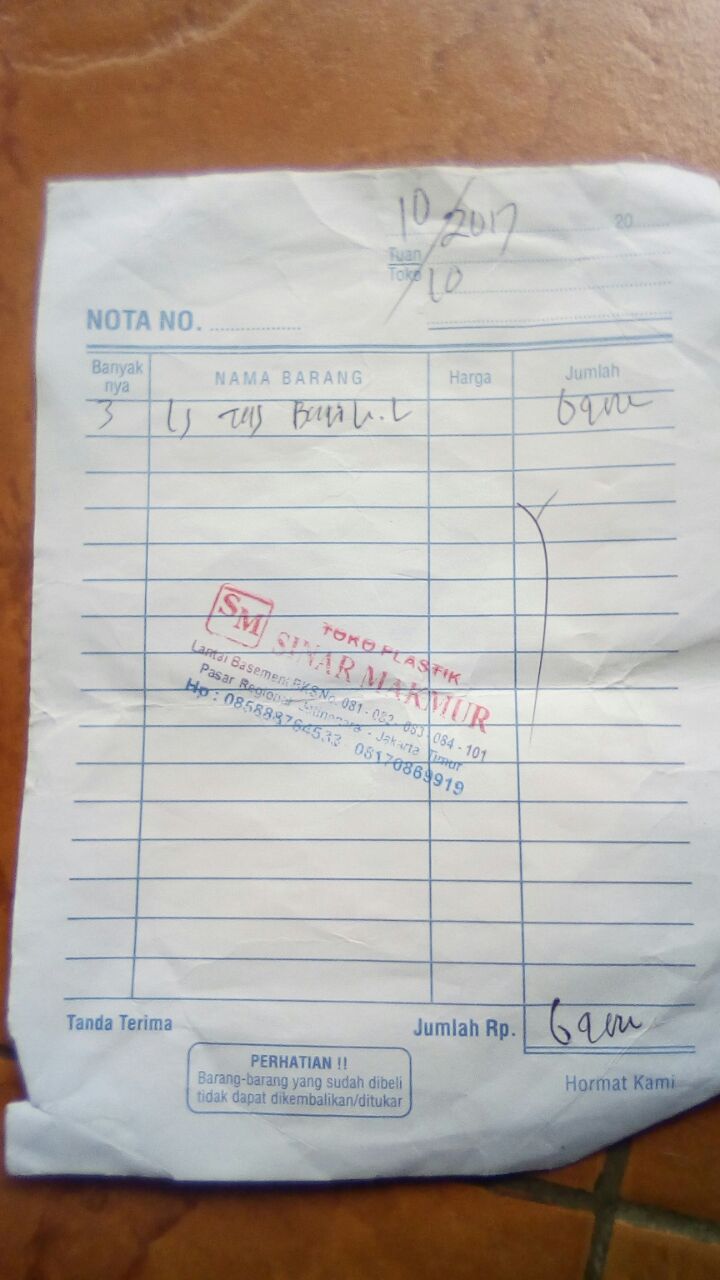 10/2017
20
Tuan
Toko
10
NOTA NO.
Banyak nya NAMA BARANG Harga Jumlah
3 Ls Tas
SM TOKO PLASTIK
SINAR MAKMUR
Lantai Basement BKS No. 081 - 082 - 083 - 084 - 101
Pasar Regional Jatinegara - Jakarta Timur
Hp : 085888764533 08170869919
Tanda Terima Jumlah Rp.
PERHATIAN !!
Barang-barang yang sudah dibeli
tidak dapat dikembalikan/ditukar
Hormat Kami